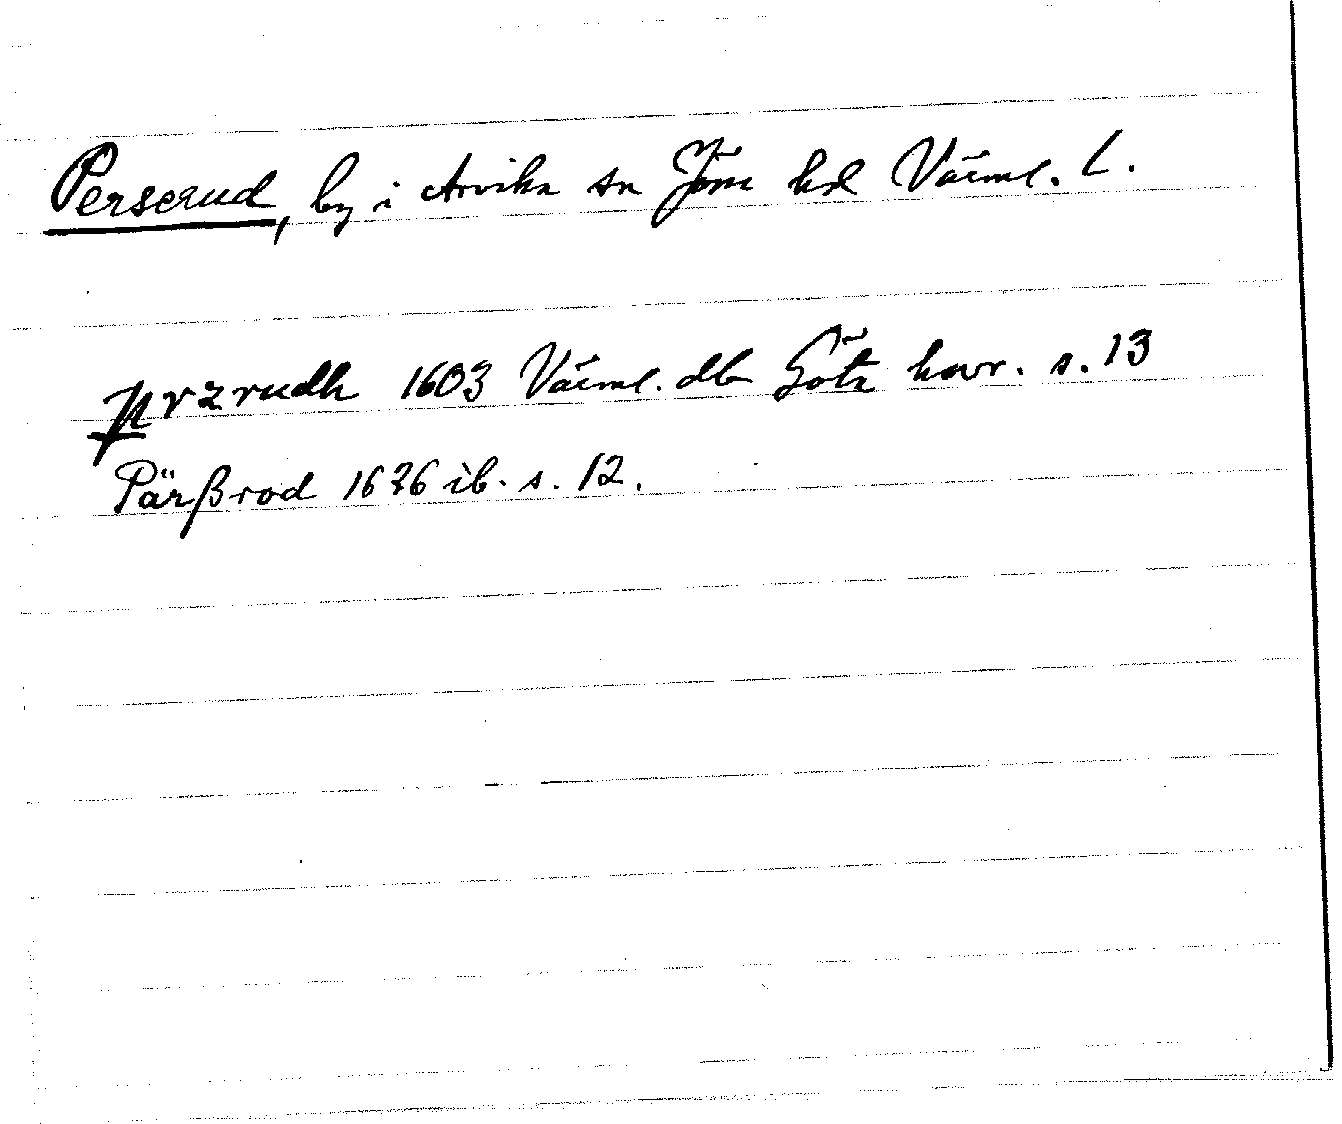 Perserud, by i Arvika sn Jösse hd Värml. L.
przrudh 1603 Värml. db Götz havr. s. 13
Pärßrod 1626 ib. s. 12.